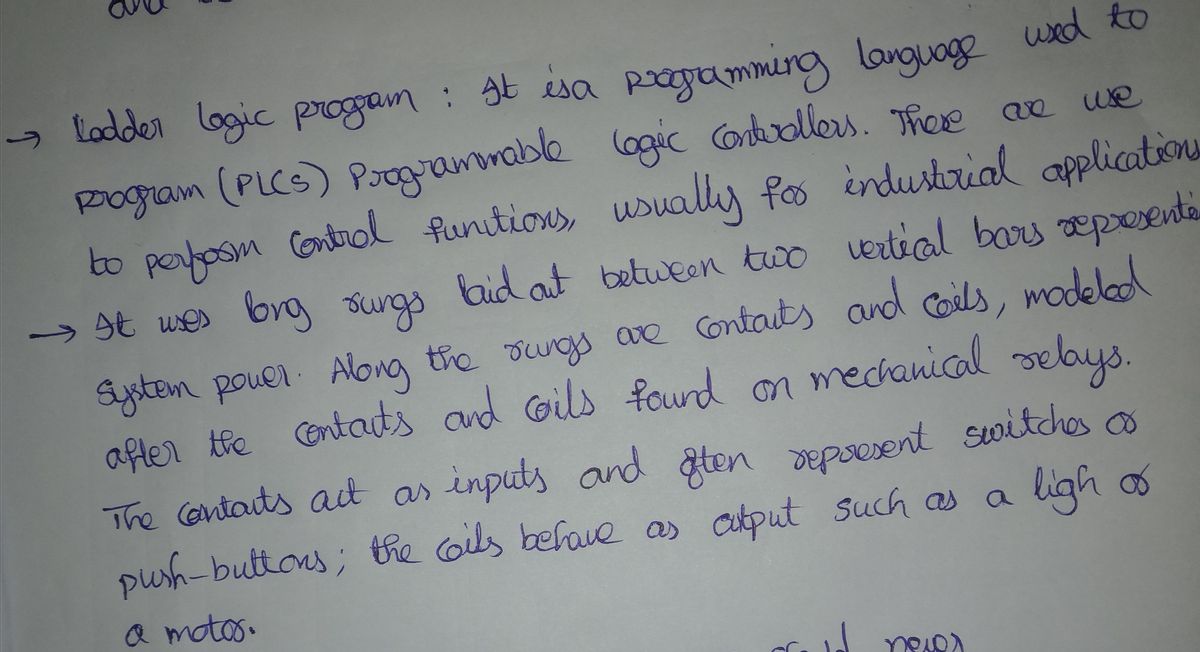 and
→ Ladder logic program : It is a programming language used to
program (PLCS) Programmable logic controllers. There are use
to perform control functions, usually for industrial applications
→ It uses long rungs laid out between two vertical bars representi
system power. Along the rungs are contacts and coils, modeled
after the contacts and coils found on mechanical relays.
The contacts act as inputs and often represent switches or
push-buttons; the coils behave as output such as a ligh or
a motor.
never